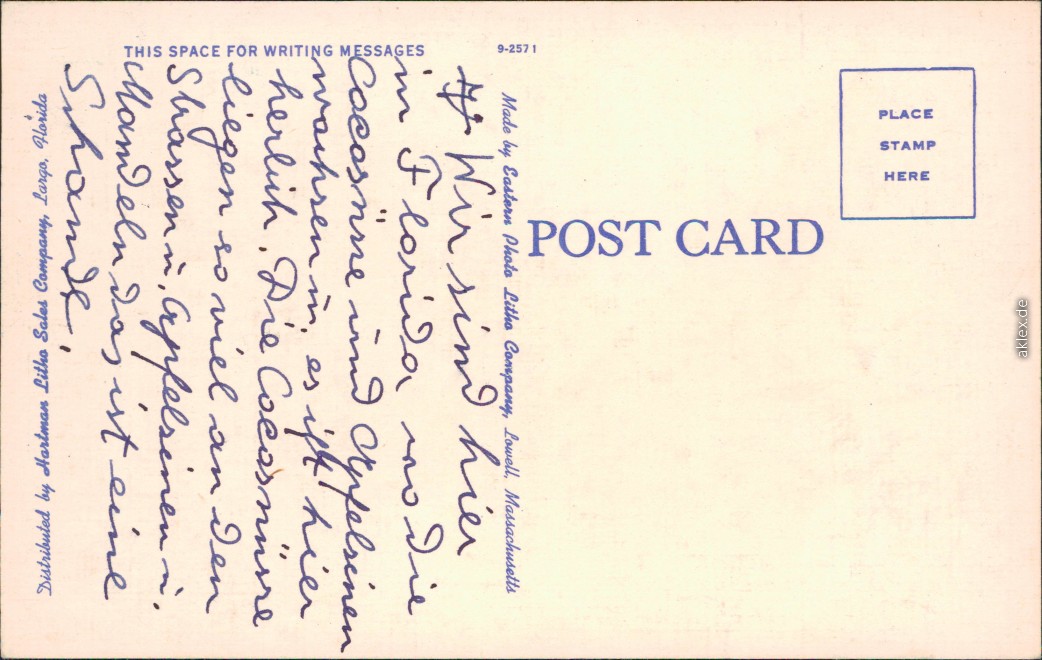 THIS SPACE FOR WRITING MESSAGES
9-2571
Wir sind hier
in Florida wo die
Cocosnüsse und Apfelsinen
wachsen u. es ist hier
herlich. Die Cocosnüsse
liegen so viel an den
Strassen u. Apfelsinen u.
Mandeln das ist eine
Schande,
Made by Eastern Photo Litho Company, Lowell, Massachusetts
Distributed by Hartman Litho Sales Company, Largo, Florida
POST CARD
PLACE
STAMP
HERE
aklex.de